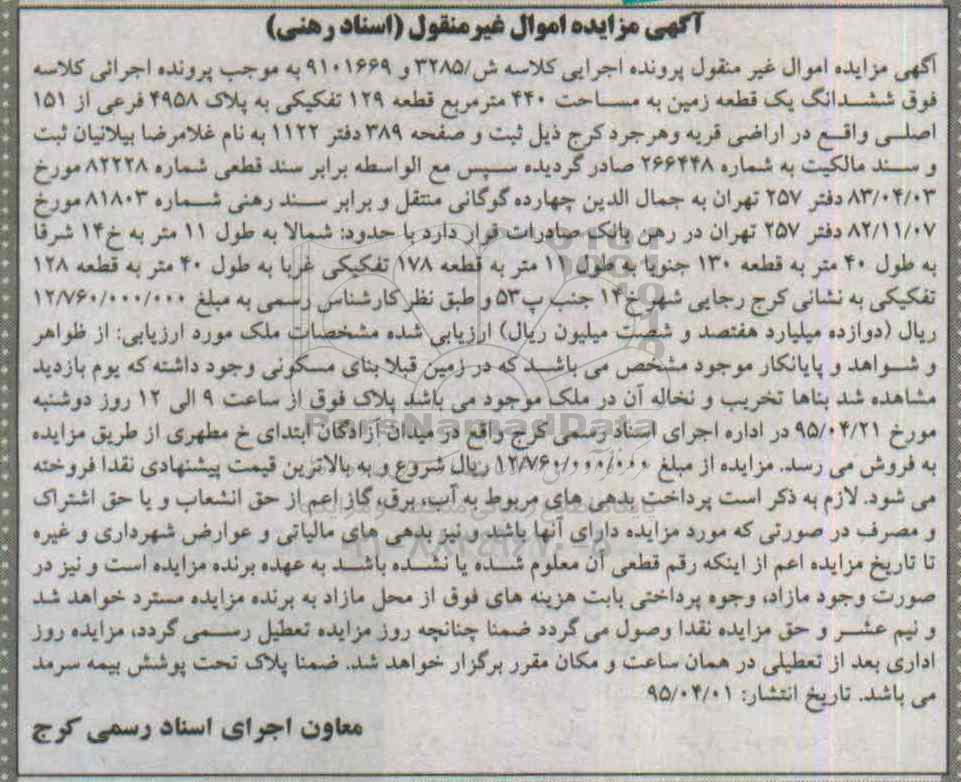 آگهی مزایده اموال غیرمنقول (اسناد رهنی)
آگهی مزایده اموال غیر منقول پرونده اجرایی کلاسه ش/۳۲۸۵ و ۹۱۰۱۶۶۹ به موجب پرونده اجرائی کلاسه
فوق ششدانگ یک قطعه زمین به مساحت ۴۴۰ مترمربع قطعه ۱۲۹ تفکیکی به پلاک ۴۹۵۸ فرعی از ۱۵۱
اصلی واقع در اراضی قریه وهرجرد کرج ذیل ثبت و صفحه ۳۸۹ دفتر ۱۱۲۲ به نام غلامرضا بیلانیان ثبت
و سند مالکیت به شماره ۲۶۶۴۴۸ صادر گردیده سپس مع الواسطه برابر سند قطعی شماره ۸۲۲۲۸ مورخ
۸۳/۰۴/۰۳ دفتر ۲۵۷ تهران به جمال الدین چهارده گوگانی منتقل و برابر سند رهنی شماره ۸۱۸۰۳ مورخ
۸۲/۱۱/۰۷ دفتر ۲۵۷ تهران در رهن بانک صادرات قرار دارد با حدود: شمالا به طول ۱۱ متر به خ۱۴ شرقا
به طول ۴۰ متر به قطعه ۱۳۰ جنوبا به طول ۱۱ متر به قطعه ۱۷۸ تفکیکی غربا به طول ۴۰ متر به قطعه ۱۲۸
تفکیکی به نشانی کرج رجایی شهر خ۱۴ جنب پ۵۳ و طبق نظر کارشناس رسمی به مبلغ ۱۲/۷۶۰/۰۰۰/۰۰۰
ریال (دوازده میلیارد هفتصد و شصت میلیون ریال) ارزیابی شده مشخصات ملک مورد ارزیابی: از ظواهر
و شواهد و پایانکار موجود مشخص می باشد که در زمین قبلا بنای مسکونی وجود داشته که یوم بازدید
مشاهده شد بناها تخریب و نخاله آن در ملک موجود می باشد پلاک فوق از ساعت ۹ الی ۱۲ روز دوشنبه
مورخ ۹۵/۰۴/۲۱ در اداره اجرای اسناد رسمی کرج واقع در میدان آزادگان ابتدای خ مطهری از طریق مزایده
به فروش می رسد. مزایده از مبلغ ۱۲/۷۶۰/۰۰۰/۰۰۰ ریال شروع و به بالاترین قیمت پیشنهادی نقدا فروخته
می شود. لازم به ذکر است پرداخت بدهی های مربوط به آب، برق، گاز اعم از حق انشعاب و یا حق اشتراک
و مصرف در صورتی که مورد مزایده دارای آنها باشد و نیز بدهی های مالیاتی و عوارض شهرداری و غیره
تا تاریخ مزایده اعم از اینکه رقم قطعی آن معلوم شده یا نشده باشد به عهده برنده مزایده است و نیز در
صورت وجود مازاد، وجوه پرداختی بابت هزینه های فوق از محل مازاد به برنده مزایده مسترد خواهد شد
و نیم عشر و حق مزایده نقدا وصول می گردد ضمنا چنانچه روز مزایده تعطیل رسمی گردد، مزایده روز
اداری بعد از تعطیلی در همان ساعت و مکان مقرر برگزار خواهد شد. ضمنا پلاک تحت پوشش بیمه سرمد
می باشد. تاریخ انتشار: ۹۵/۰۴/۰۱
معاون اجرای اسناد رسمی کرج
ParsNamadData